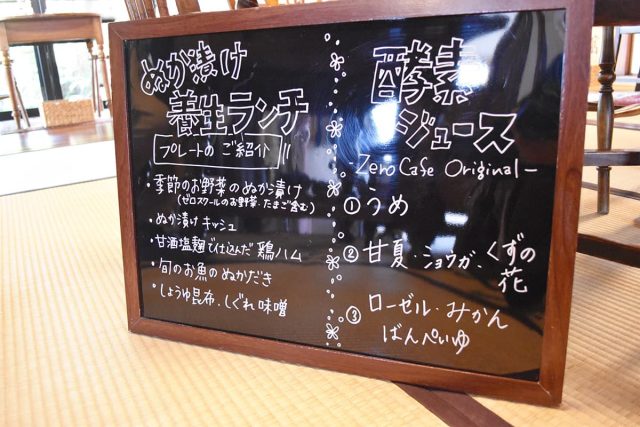 ぬか漬け
養生ランチ
プレートのご紹介
・季節のお野菜のぬか漬け
(ゼロスクールのお野菜・たまご含む)
・ぬか漬けキッシュ
・甘酒塩麹で仕込んだ鶏ハム
・旬のお魚のぬかだき
・しょうゆ昆布、しぐれ味噌
酵素
ジュース
-Zero Cafe Original-
①うめ
②甘夏・ショウガ、くずの
花
③ローゼル・みかん
ばんぺいゆ